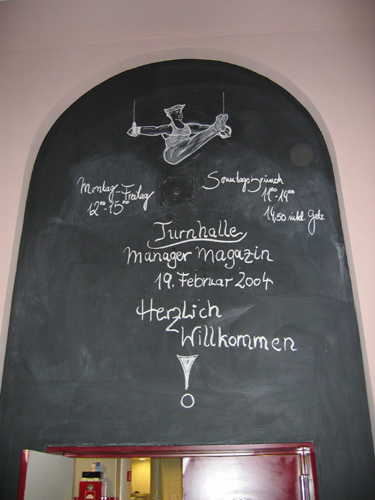 Montag-Freitag
12⁰⁰-15⁰⁰
Sonntagsbrunch
11⁰⁰-14⁰⁰
14,50 inkl. Getr.
Turnhalle
Manager Magazin
19. Februar 2004
Herzlich
Willkommen
!